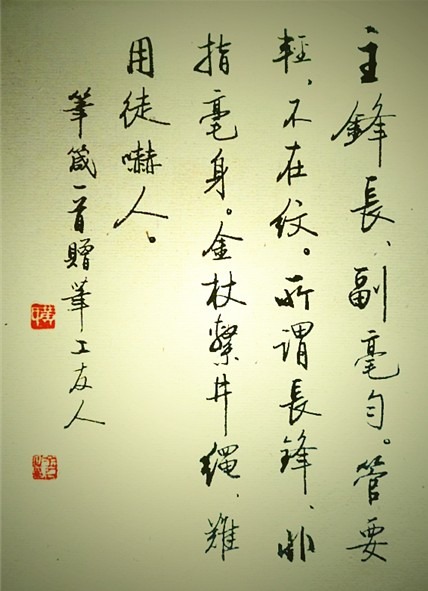 主鋒長、副毫勻。管要
輕、不在紋。所謂長鋒、非
指毫身。金杖繫井繩、難
用徒嚇人。
筆箴一首贈筆工友人